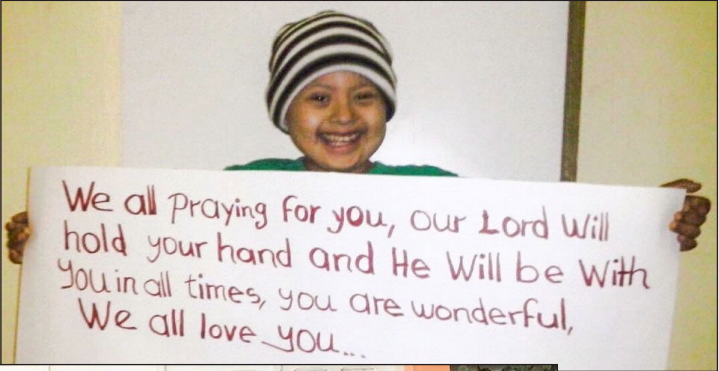 We all praying for you, our Lord Will
hold your hand and He Will be With
you in all times, you are wonderful,
We all love you...